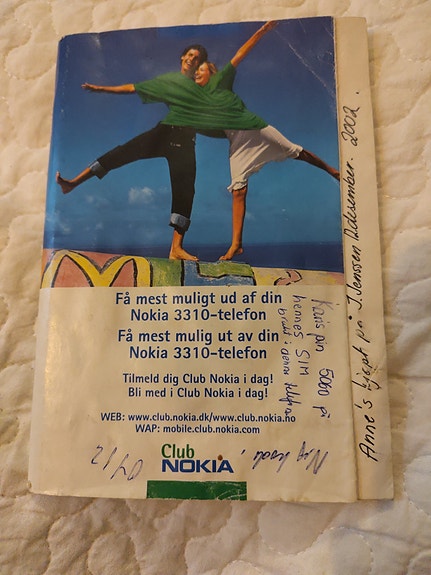 Få mest muligt ud af din
Nokia 3310-telefon
Få mest mulig ut av din
Nokia 3310-telefon
Tilmeld dig Club Nokia i dag!
Bli med i Club Nokia i dag!
WEB: www.club.nokia.dk/www.club.nokia.no
WAP: mobile.club.nokia.com
Club
NOKIA
pin 5060 på
hennes SIM
Ny kode
Anne's kjøpt på J. Jenssen desember. 2002.